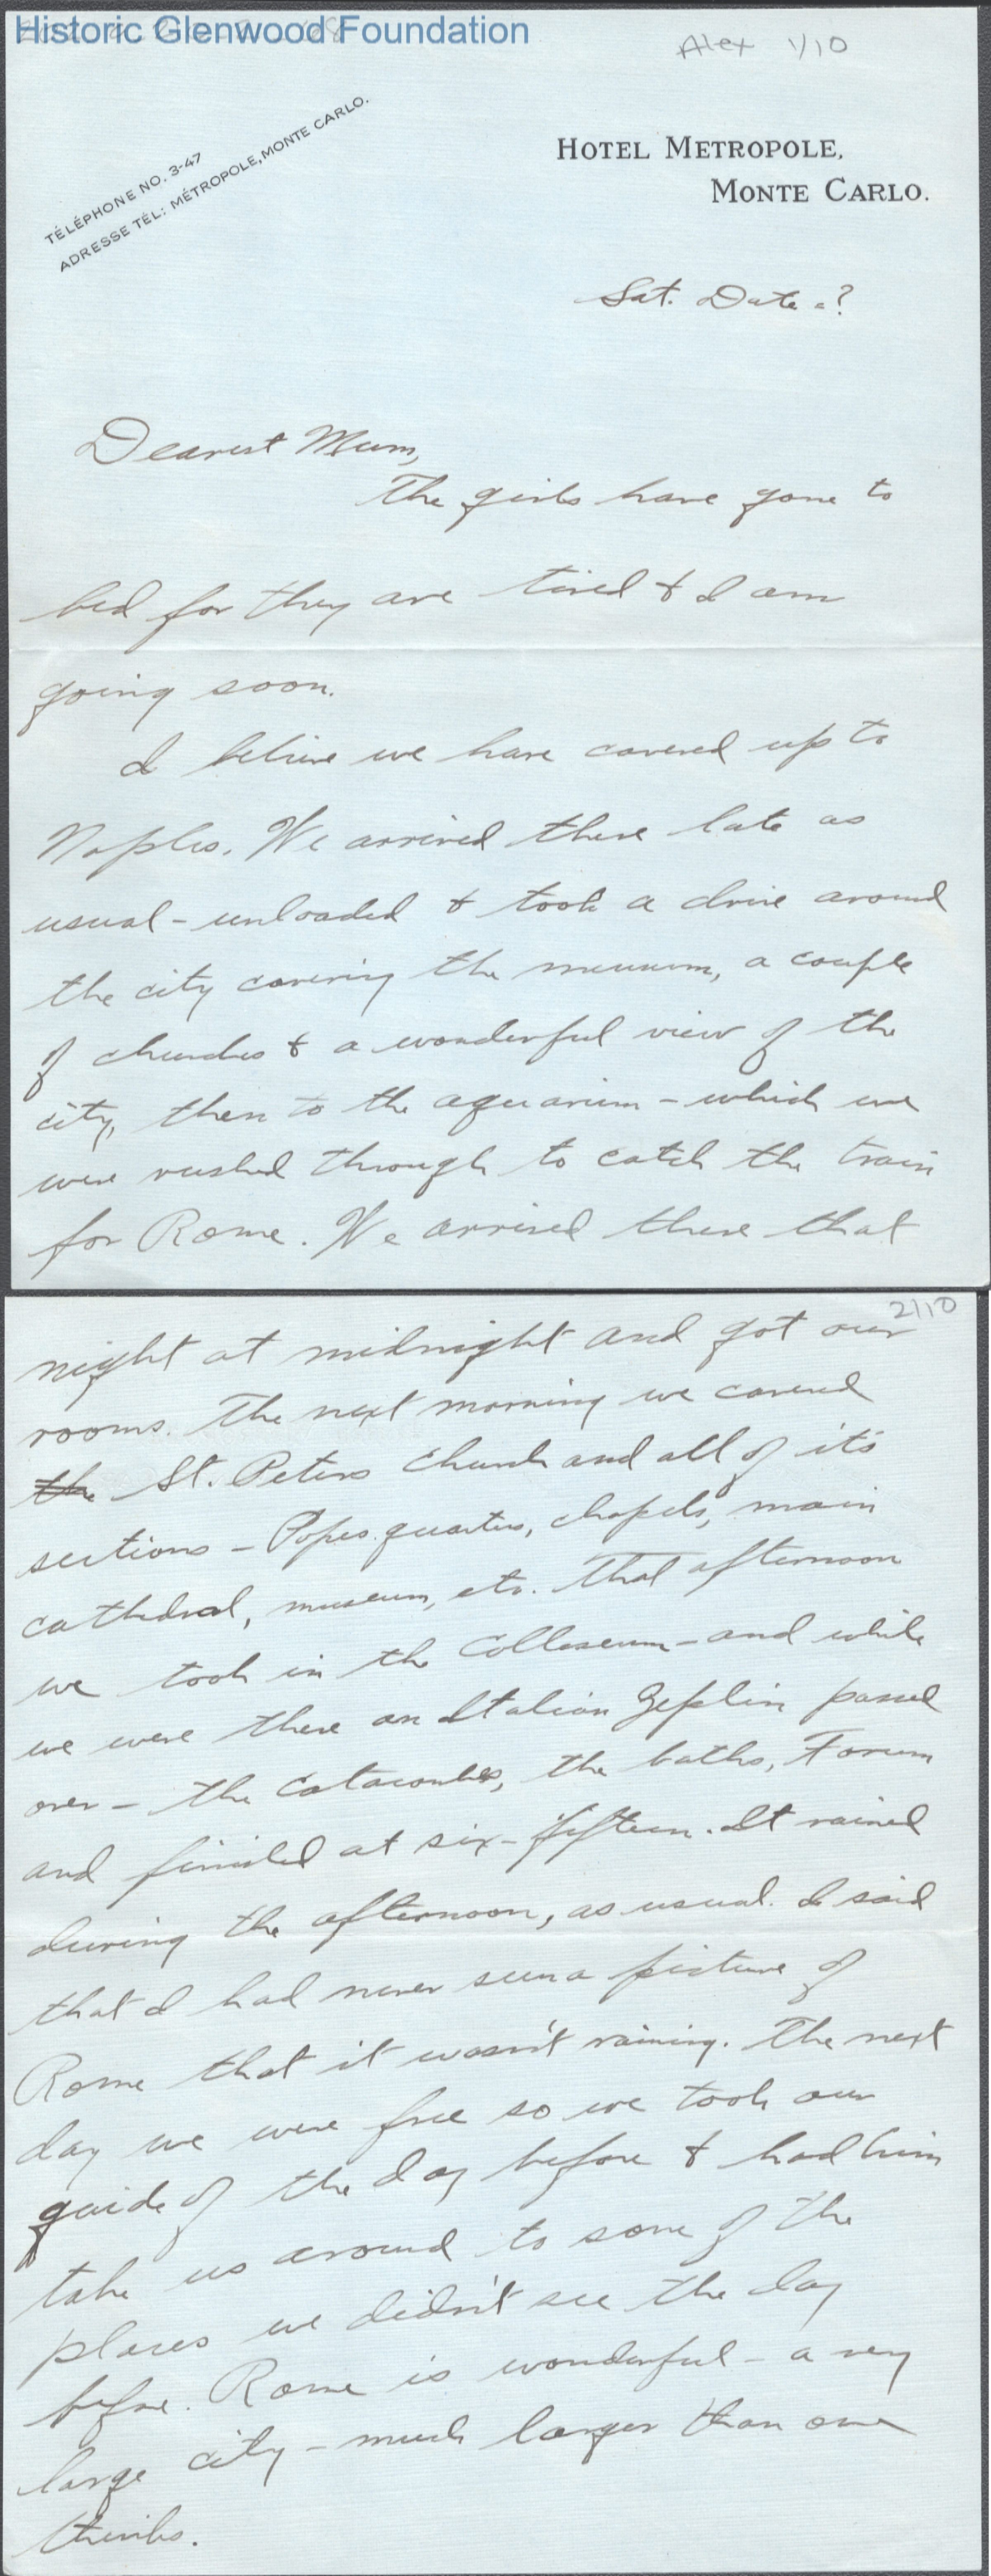 Historic Glenwood Foundation
Alex 1/10
TÉLÉPHONE NO. 3-47
ADRESSE TÉL: MÉTROPOLE, MONTE CARLO.
HOTEL METROPOLE,
MONTE CARLO.
Sat. Date - ?
Dearest Mum,
The girls have gone to
bed for they are tired & I am
going soon.
I believe we have covered up to
Naples. We arrived there late as
usual - unloaded & took a drive around
the city covering the museum, a couple
of churches & a wonderful view of the
city, then to the aquarium - which we
were rushed through to catch the train
for Rome. We arrived there that
2/10
night at midnight and got our
rooms. The next morning we covered
the St. Peters Church and all of it's
sections - Popes quarters, chapels, main
cathedral, museum, etc. That afternoon
we took in the Colloseum - and while
we were there an Italian Zeplin passed
over - the Catacombs, the baths, Forum
and finished at six-fifteen. It rained
during the afternoon, as usual. I said
that I had never seen a picture of
Rome that it wasn't raining. The next
day we were free so we took our
guide of the day before & had him
take us around to some of the
places we didn't see the day
before. Rome is wonderful - a very
large city - much larger than one
thinks.